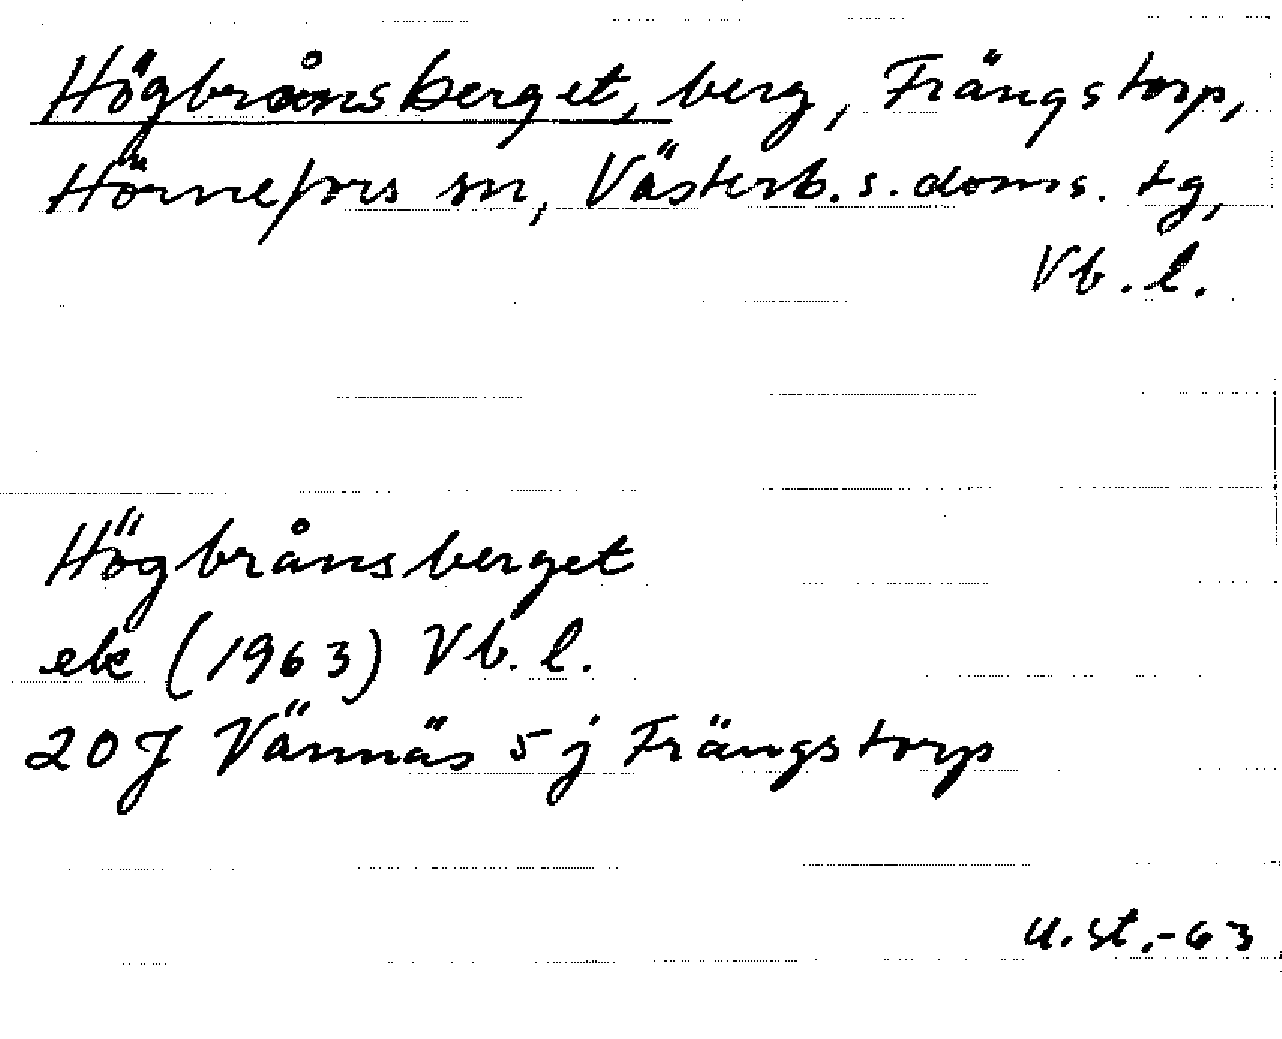 Högbrånsberget, berg, Frängstorp,
Hörnefors sn, Västerb. s. doms. tg,
Vb. l.
Högbrånsberget
ek (1963) Vb. l.
20 J Vännäs 5 j Frängstorp
u. st. -63